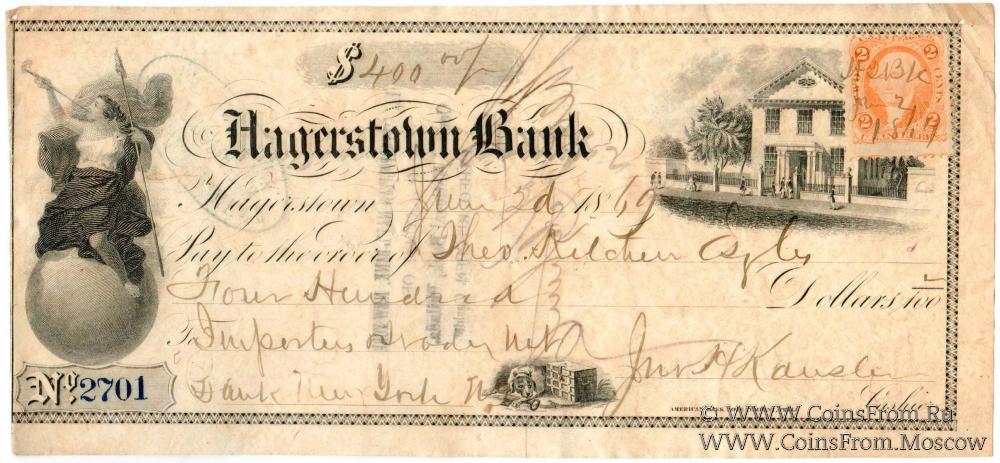 $400 00/
2 CENTS 2
2 2
Hagerstown Bank
Hagerstown June 2d 1869
Pay to the order of Theo. Csq
Four Hundred Dollars, 100
To Importers & Traders Nat
Bank New York Jno H Kausler
No. 2701 Cashr.
AMERICAN
© WWW.CoinsFrom.Ru
WWW.CoinsFrom.Moscow